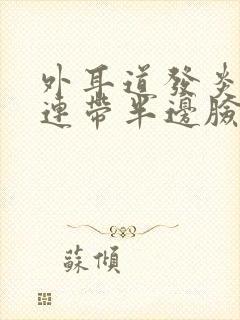 外耳道發炎
連帶半邊臉
蘇傾